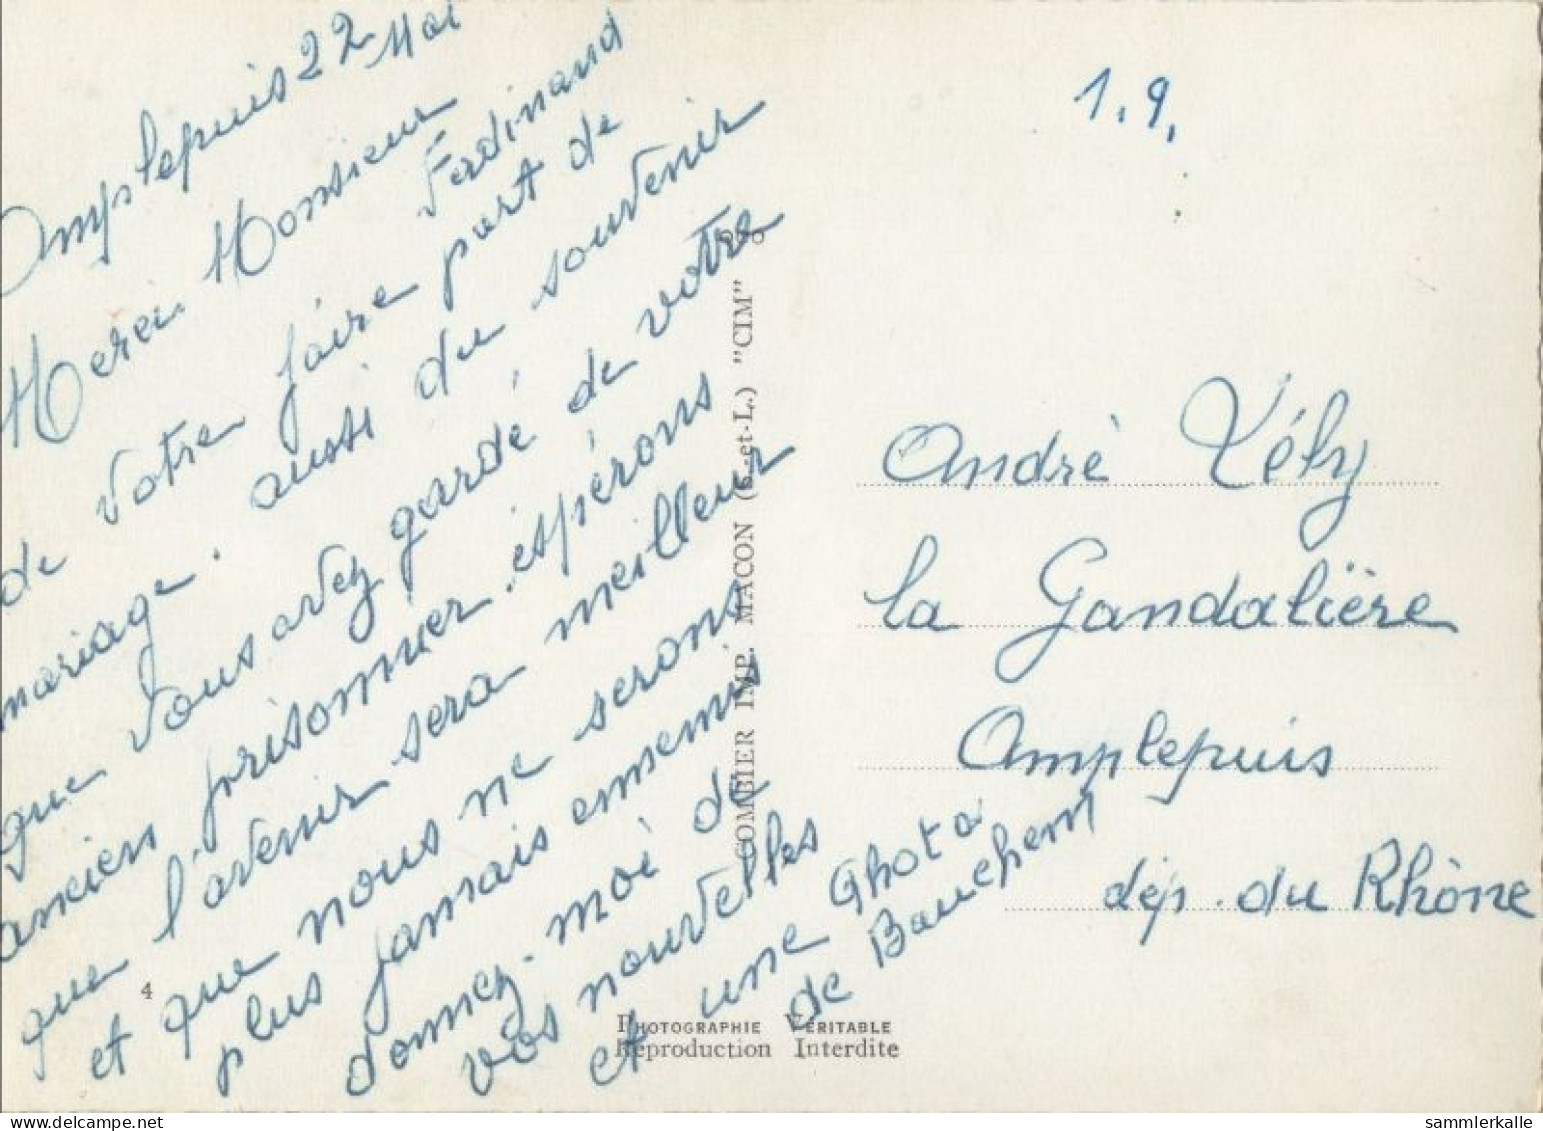 Amplepuis 22 Mai
Merci Monsieur
Ferdinand
de votre faire part de
mariage. aussi du souvenir
que vous avez gardé de votre
ancien prisonnier. espérons
que l'avenir sera meilleur
et que nous ne serons
plus jamais ennemis
donnez-moi de
vos nouvelles
et une Photo
de Bauchem
1.9.
André Vély
la Gandalière
Amplepuis
dép. du Rhône
COMBIER IMP. MACON (S.-et-L.) "CIM"
4
PHOTOGRAPHIE VÉRITABLE
Reproduction Interdite
sammlerkalle